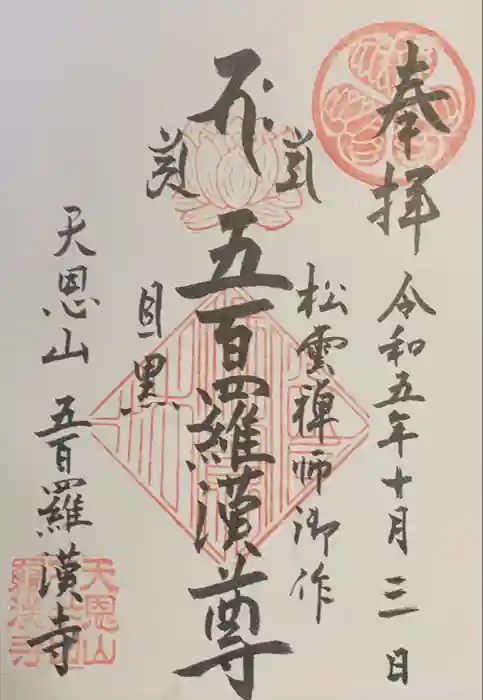 奉拝
令和五年十月三日
松雲禅師御作
五百羅漢尊
目黒
天恩山 五百羅漢寺
天恩山
羅漢寺